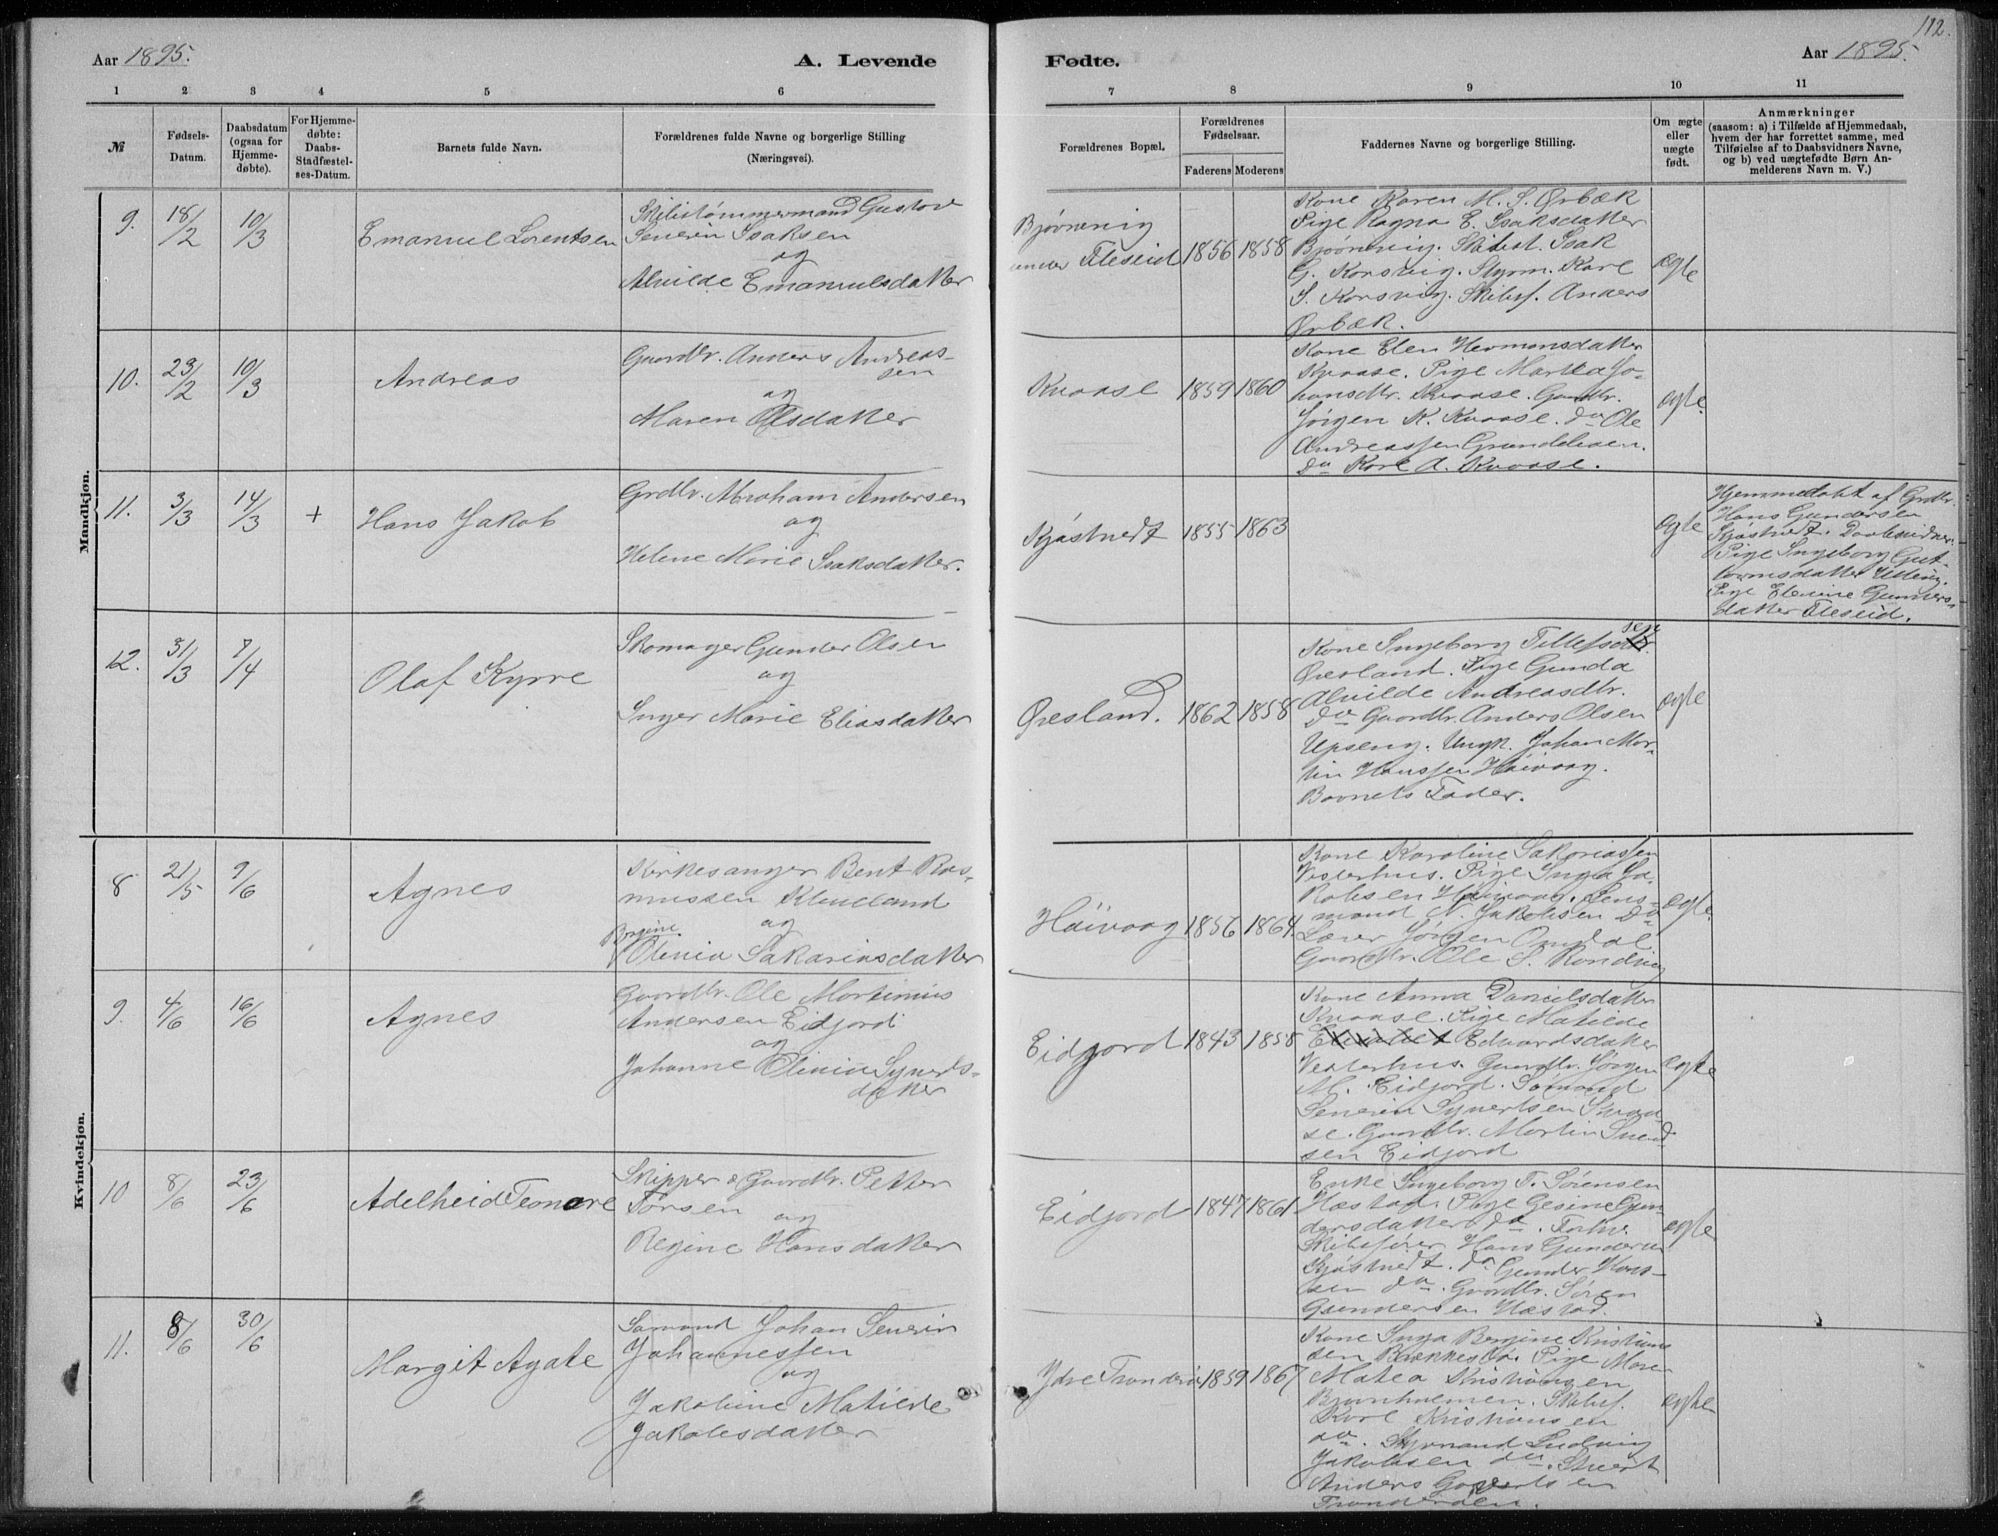 112.
Aar 1895.
A. Levende
Fødte.
Aar 1895.
1 2 3 4 5 6 7 8 9 10 11
№
Fødsels-
Datum.
Daabsdatum
(ogsaa for
Hjemme-
døbte).
For Hjemme-
døbte:
Daabs-
Stadfæstel-
ses-Datum.
Barnets fulde Navn.
Forældrenes fulde Navne og borgerlige Stilling
(Næringsvei).
Forældrenes Bopæl.
Forældrenes
Fødselsaar.
Faderens Moderens
Faddernes Navne og borgerlige Stilling.
Om ægte
eller
uægte
født.
Anmærkninger
(saasom: a) i Tilfælde af Hjemmedaab,
hvem der har forrettet samme, med
Tilføielse af to Daabsvidners Navne,
og b) ved uægtefødte Børn An-
melderens Navn m. V.)
Mandkjøn.
9. 18/2 10/3
Emanuel Lorentsen
Skibstømmermand Gustav
Severin Isaksen
og
Alvilde Emanuelsdatter
Bjørnevig
under Fleseid
1856 1858
Kone Karen M. S. Ørbæk
Pige Ragna E. Isaksdatter
Bjørnevig. Skibst. Isak
G. Korsvig. Styrm. Karl
S. Korsvig. Skibsf. Anders
Ørbæk.
ægte
10. 23/2 10/3
Andreas
Gaardbr. Anders Andreas-
sen
og
Maren Olsdatter
Kvaase
1859 1860
Kone Elen Hermansdatter
Kvaase. Pige Martea Jo-
hansdtr. Kvaase. Gaardbr.
Jørgen K. Kvaase. do Ole
Andreassen
do Karl A. Kvaase.
ægte.
11. 3/3 14/3 +
Hans Jakob
Grdbr. Abraham Andersen
og
Helene Marie Isaksdatter.
Kjøstvedt
1855 1863
ægte
Hjemmedøbt af Grdbr.
Hans Gundersen
Kjøstvedt. Daabsvidner:
Pige Ingeborg Gut-
tormsdatter
Pige Elevine Gunders-
datter Fleseid.
12. 31/3 7/4
Olaf Kyrre
Skomager Gunder Olsen
og
Inger Marie Eliasdatter
Øresland.
1862 1858
sen
Kone Ingeborg Tellefsdtr.
Øresland. Pige Gunda
Alvilde Andreasdtr.
do Gaardbr. Anders Olsen
Upseng. Ungk. Johan Mar-
tin Hanssen Høivaag.
Barnets Fader.
ægte
Kvindekjøn.
8 21/5 9/6
Agnes
Kirkesanger Bent Ras-
mussen Kleveland
og
Bergine
Olevia Sakariasdatter
Høivaag
1856 1864.
Kone Karoline Sakariassen
Vesterhus. Pige Inga Ja-
kobsen Høivaag. Lens-
mand N. Jakobsen do
Lærer Jørgen Omdal.
Gaardbr. Ole S. Randvig
ægte.
9. 4/6 16/6
Agnes
Gaardbr. Ole Martinius
Andersen Eidjord
og
Johanne Olevia Syverts-
datter
Eidjord
1843 1858
Kone Anna Danielsdatter
Kvaase. Pige Matilde
Edvardsdatter
Vesterhus. Gaardbr. Jørgen
M. Eidjord. Sømand
Severin Syvertsen Kvaa-
se. Gaardbr. Martin Svend-
sen Eidjord
ægte
10 8/6 23/6
Adelheid Teonore
Skipper & Gaardbr. Petter
Tørsen
og
Regine Hansdatter
Eidjord
1847 1861
Enke Ingeborg T. Sørensen
Hæstad. Pige Gesine Gun-
dersdatter do. Forhv.
Skibsfører Hans Gundersen
Kjøstvedt. do Gunder Hans-
sen do. Gaardbr. Søren
Gundersen Hæstad.
ægte
11. 8/6 30/6
Margit Agate
Sømand Johan Severin
Johannessen
og
Jakobine Matilde
Jakobsdatter
Ydre Tronderø
1859 1867
Kone Inga Bergine Kristians
sen Pige Maren
Matea Kristiansen
Bjørnholmen. Skibsf.
Karl Kristiansen
do. Styrmand Ludvig
Jakobsen do.
Anders
Tronderøen.
ægte